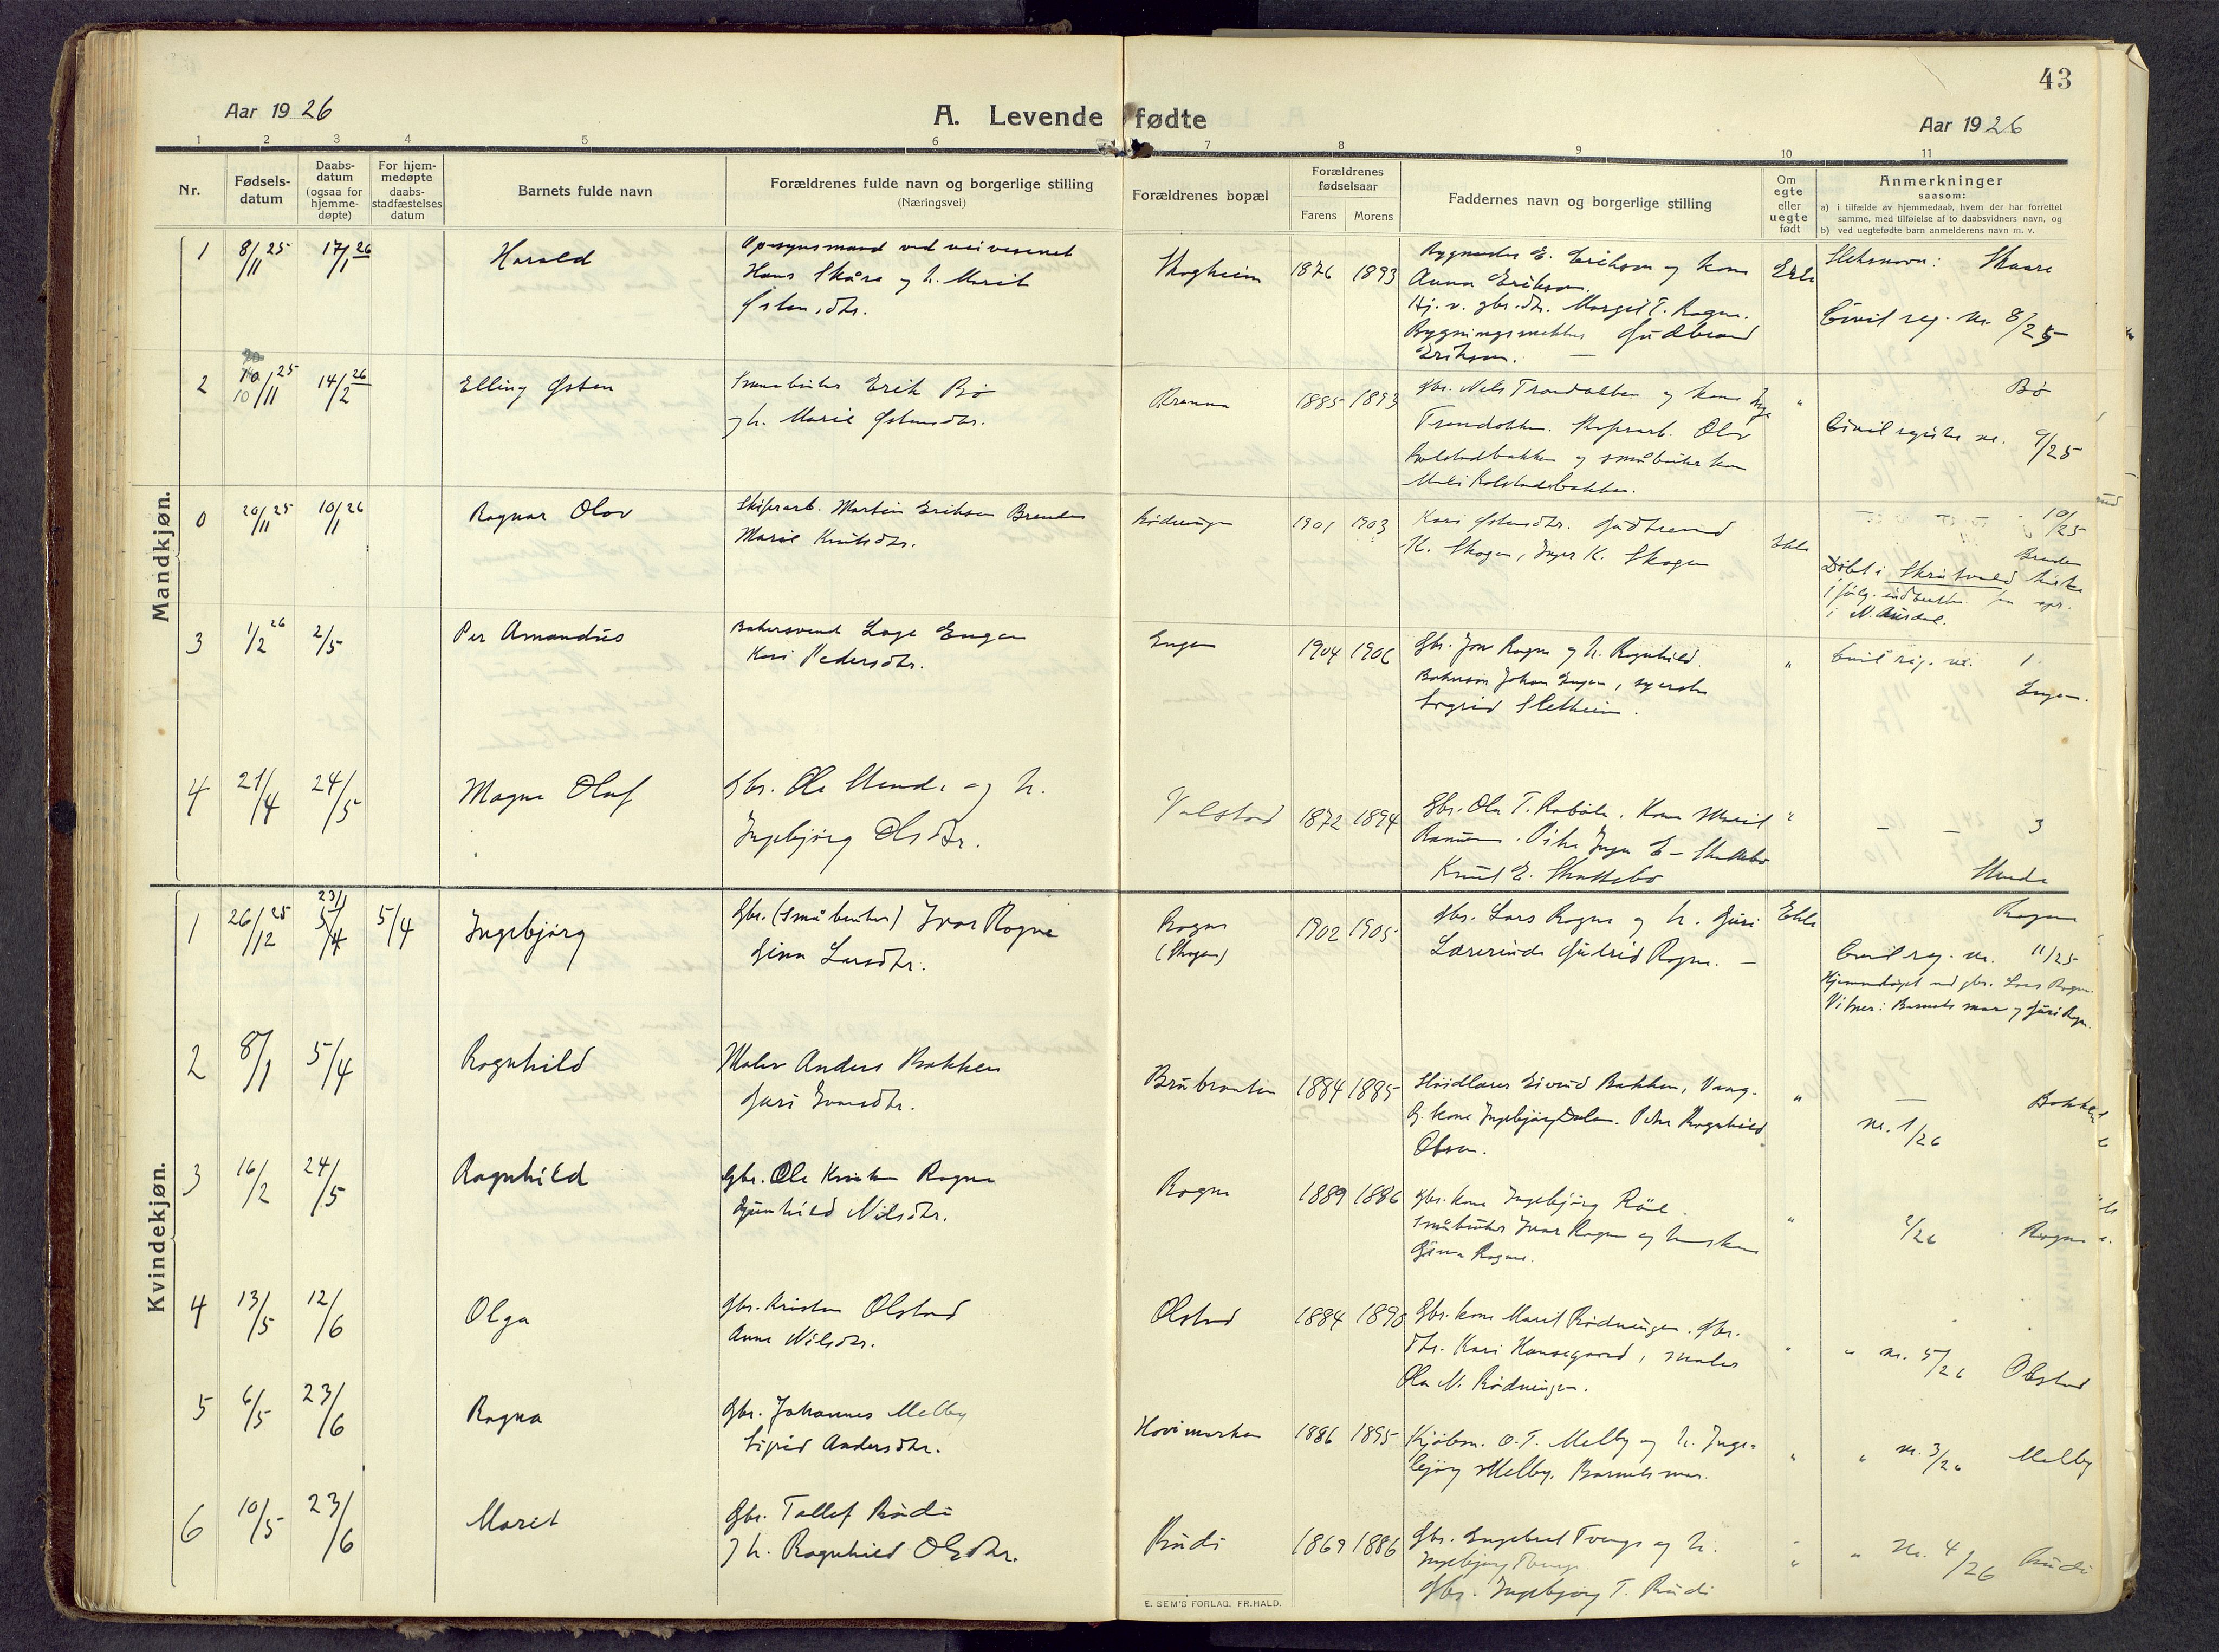 43
Aar 1926
A. Levende fødte
Aar 1926
1 2 3 4 5 6 7 8 9 10 11
Nr.
Fødsels-
datum
Daabs-
datum
(ogsaa for
hjemme-
døpte)
For hjem-
medøpte
daabs-
stadfæstelses
datum
Barnets fulde navn
Forældrenes fulde navn og borgerlige stilling
(Næringsvei)
Forældrenes bopæl
Forældrenes
fødselsaar
Farens Morens
Faddernes navn og borgerlige stilling
Om
egte
eller
uegte
født
Anmerkninger
saasom:
a) i tilfælde av hjemmedaab, hvem der har forrettet
samme, med tilføielse af to daabsvidners navn, og
b) ved uegtefødte barn anmelderens navn m. v.
Mandkjøn.
1 8/11 25 17/1 26 Harald
Opsynsmand ved veivesenet
Hans Skåre og h. Marit
Østensdtr.
Skogheim 1876 1893
E. Erikson og kone
Anna Erikson.
Hj. v. gbr. dtr. Margit T. Rogne.
Gudbrand
Erikson.
Ekte
Sleksnavn: Skaare
Civil reg. nr. 8/25
2 10/11 25 14/2 26 Elling Østen
Erik Bø
og h. Marie Østensdtr.
1885 1893
Gbr. Nils Trondokken og kone Inga
Trondokken. Olav
Kolstadbakken og småbruker kone
Kolstadbakken.
" Bø
Civil register nr. 9/25
0 20/11 25 10/1 26 Ragnar Olav
Skifrarb. Martin Erikson Brenden
Marie Knutsdtr.
Rødningen 1901 1903
Kari Østensdtr. Gudbrand
K. Skogen, Inger K. Skogen
Ekte
10/25
Brenden
Døbt i Skrutvold kirke
i
i N. Aurdal.
3 1/2 26 2/5 Per Amandus
Bakersvend Lage Engen
Kari Pedersdtr.
Engen 1904 1906
Gbr. Jon Rogne og h. Ragnhild.
Johan Engen, syerske
Sigrid Sletheim.
" Civil reg. nr. 1
Engen.
4 21/4 24/5 Magne Olaf
Gbr. Ole Hende og h.
Ingebjørg Olsdtr.
Valstad 1872 1894
Gbr. Ola T. Robøle. Kone Marit
Pike Inga E. Skattebo
Knut E. Skattebo
" — — 3
Hende
Kvindekjøn.
1 26/12 25 23/1 5/4 5/4 Ingebjørg
Gbr. (Småbruker) Ivar Rogne
Gina Larsdtr.
Rogne
(Skogen)
1902 1905
Gbr. Lars Rogne og h. Guri
Lærerinde Gudrid Rogne. —
Ekte
Rogne
Civil reg. nr. 11/25
Hjemmedøpt ved gbr. Lars Rogne.
Vitner: Barnets mor og Guri Rogne.
2 8/1 5/4 Ragnhild
Maler Anders Bakken
Guri Ivarsdtr.
Brubraaten 1884 1885
Sløidlærer Eivind Bakken, Vang.
G. kone Ingebjørg Dalen. Pike Ragnhild
Olson.
" — Bakken
nr. 1/26
3 16/2 24/5 Ragnhild
Gbr. Ole Kristen Rogne
Gunhild Nilsdtr.
Rogne 1889 1886
Gbr. kone Ingebjørg Røe.
Småbruker Ivar Rogne og hustru
Gina Rogne.
" 2/26 Rogne
4 13/5 12/6 Olga
Gbr. Kristen Olstad
Anne Nilsdtr.
Olstad 1884 1890
Gbr. kone Marit Rødningen. Gbr.
dtr. Kari Hansegaard, maler
Ola N. Rødningen.
" " nr. 5/26 Olstad
5 6/5 23/6 Ragna
Gbr. Johannes Melby
Sigrid Andersdtr.
Hovimarken 1886 1895
Kjøbm. O. T. Melby og h. Inge-
bjørg Melby. Barnets mor.
" " nr. 3/26 Melby
6 10/5 23/6 Maret
Gbr. Tollef Rudi
og h. Ragnhild Olsdtr.
Rudi 1869 1886
Gbr. Engebret Tvenge og h.
Ingebjørg Tvenge.
Gbr. Ingebjørg T. Rudi
" " nr. 4/26 Rudi
E. SEM'S FORLAG, FR.HALD.